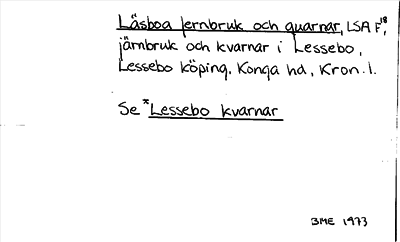 Läsboa Jernbruk och quarnar, LSA F18,
järnbruk och kvarnar i Lessebo,
Lessebo köping, Konga hd, Kron. l.
Se *Lessebo kvarnar
BME 1973